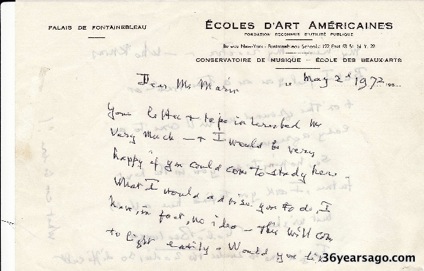 PALAIS DE FONTAINEBLEAU
ÉCOLES D'ART AMÉRICAINES
FONDATION RECONNUE D'UTILITÉ PUBLIQUE
CONSERVATOIRE DE MUSIQUE - ÉCOLE DES BEAUX-ARTS
Dear Mr
le May 2d 1972
Your letter & tape interested me
very much - & I would be very
happy if you could come to study here.
What I would advise you to do, I
have, in fact, no idea - This will come
to light easily. Would you
36yearsago.com